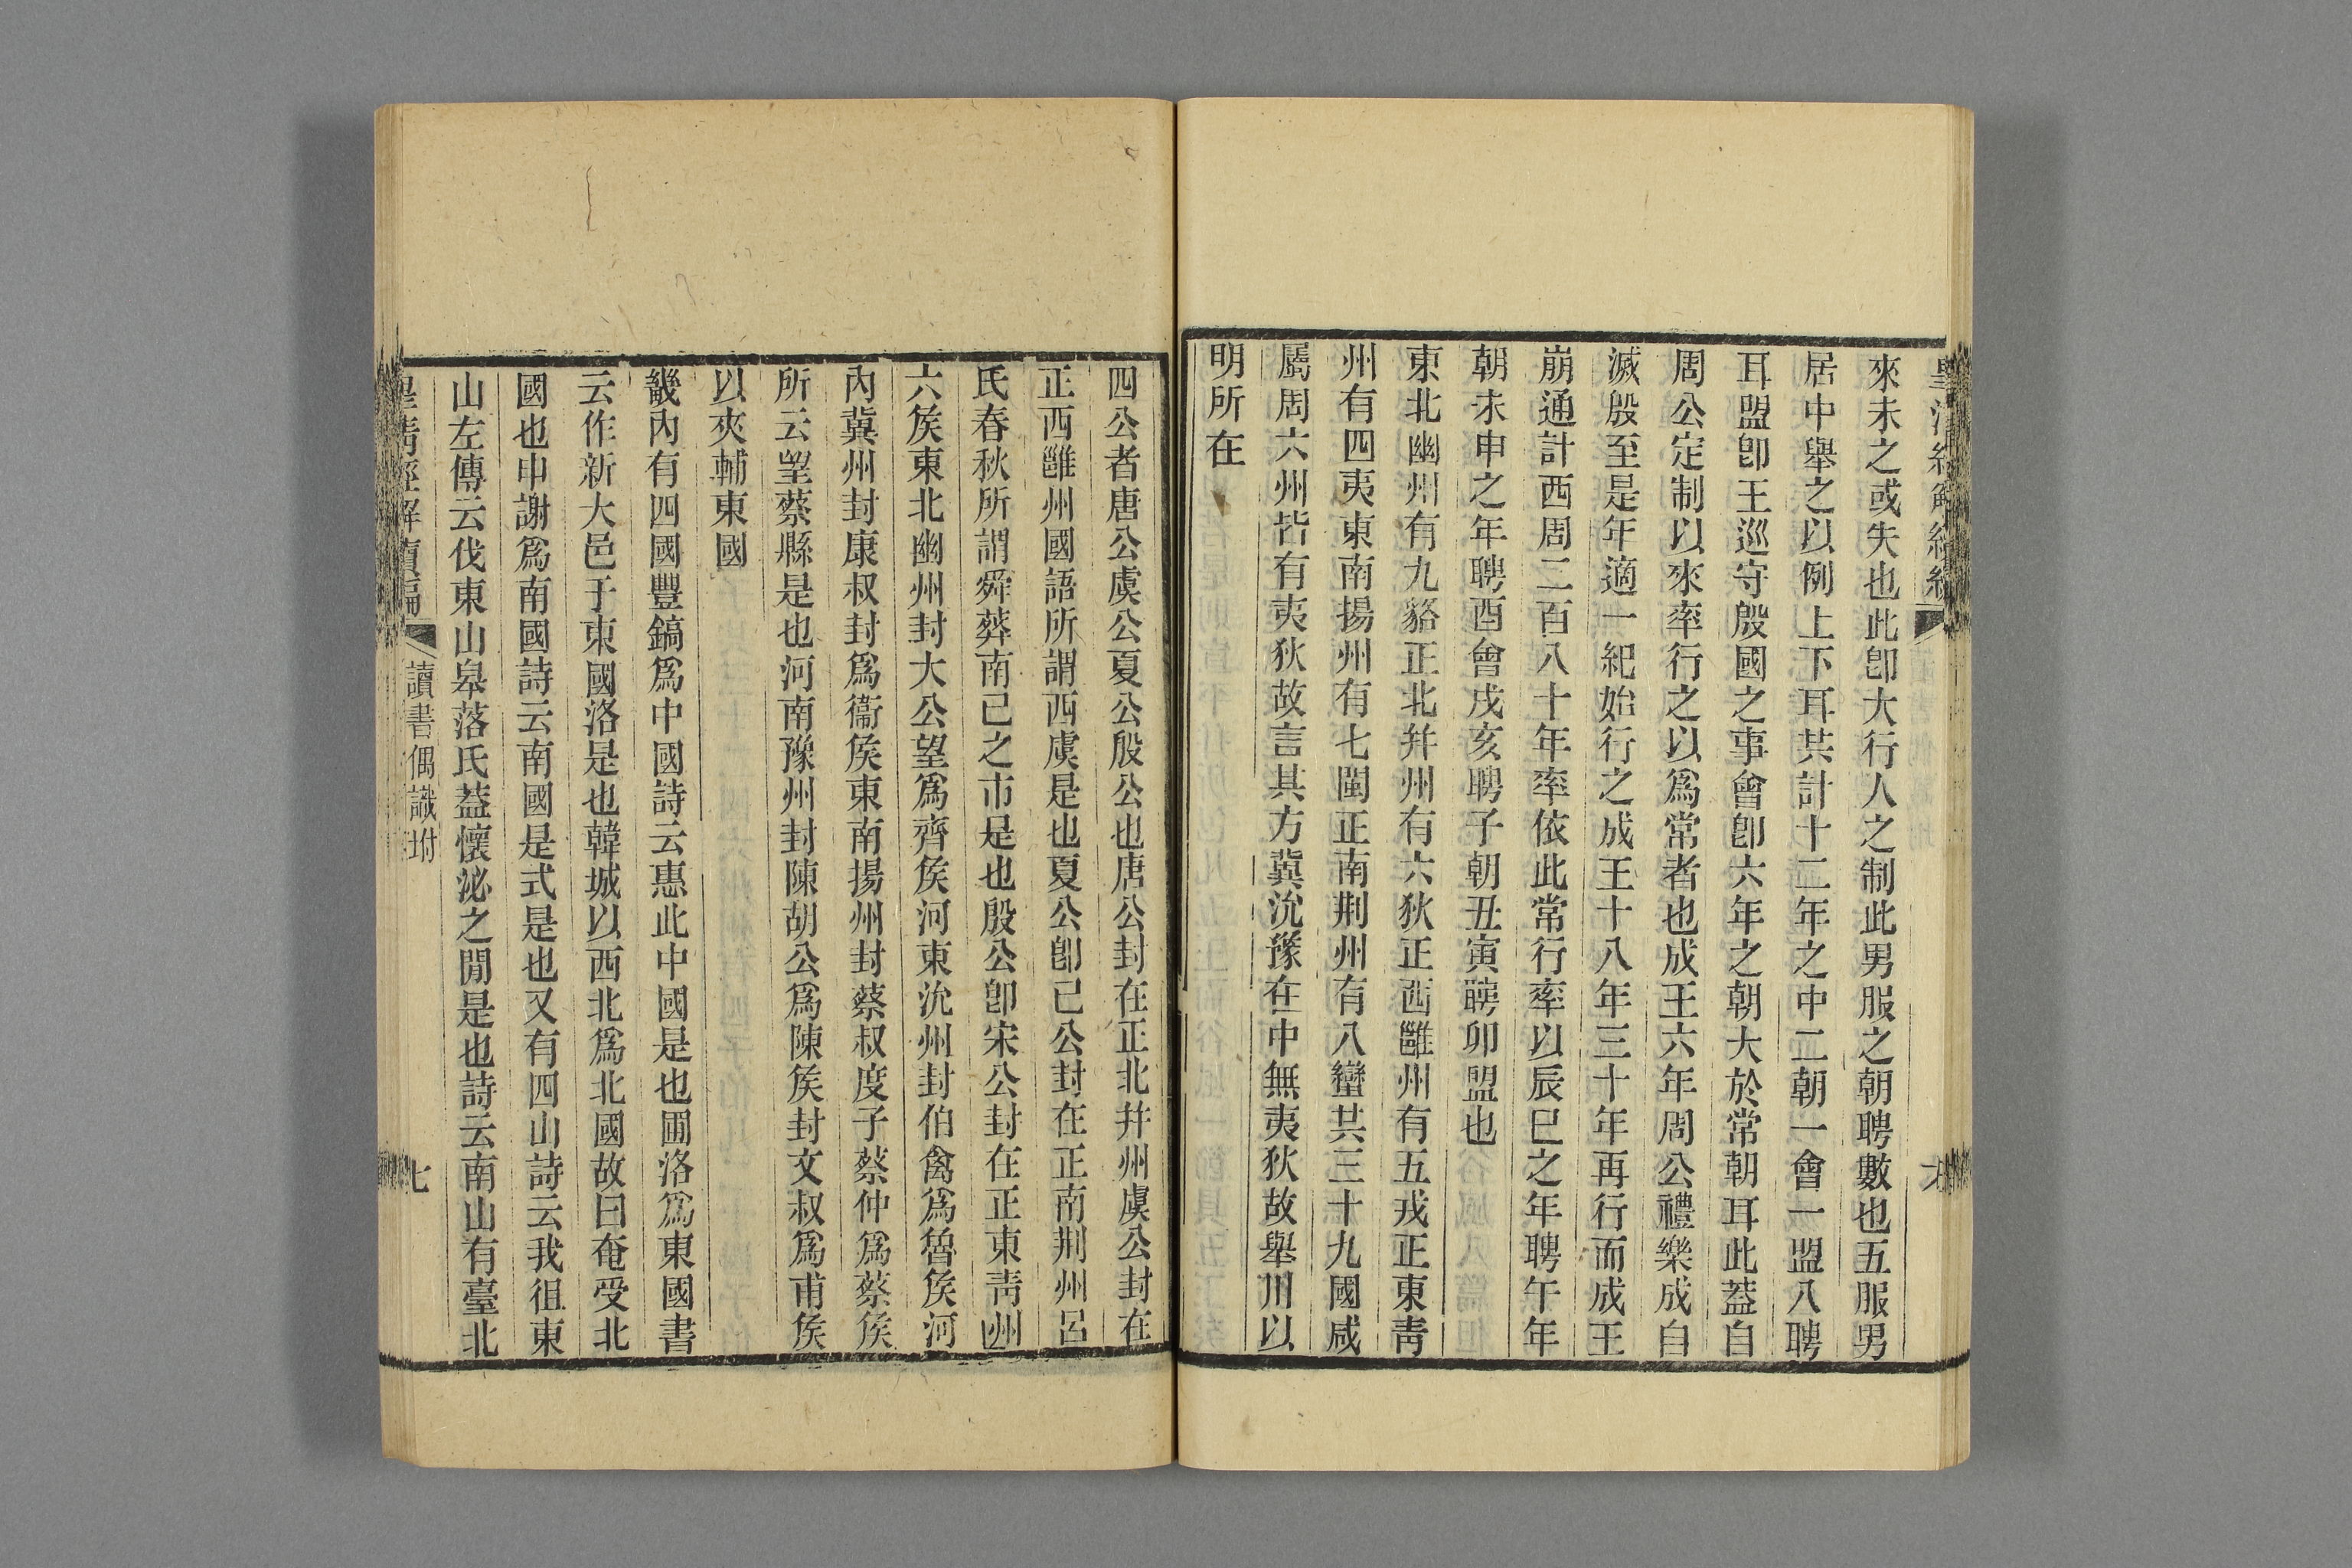 來未之或失也此卽大行人之制此男服之朝聘數也五服男
居中舉之以例上下耳其計十二年之中二朝一會一盟八聘
耳盟卽王巡守殷國之事會卽六年之朝大於常朝耳此葢自
周公定制以來率行之以爲常者也成王六年周公禮樂成自
滅殷至是年適一紀始行之成王十八年三十年再行而成王
崩通計西周二百八十年率依此常行率以辰巳之年聘午年
朝未申之年聘酉會戌亥聘子朝丑寅聘卯盟也
東北幽州有九貉正北幷州有六狄正西雝州有五戎正東靑
州有四夷東南揚州有七閩正南荆州有八蠻共三十九國咸
屬周六州皆有夷狄故言其方冀沇豫在中無夷狄故舉州以
明所在
四公者唐公虞公夏公殷公也唐公封在正北幷州虞公封在
正西雝州國語所謂西虞是也夏公卽己公封在正南荆州呂
氏春秋所謂舜葬南己之市是也殷公卽宋公封在正東靑州
六矦東北幽州封大公望爲齊矦河東沇州封伯禽爲魯矦河
內冀州封康叔封爲衞矦東南揚州封蔡叔度子蔡仲爲蔡矦
所云朢蔡縣是也河南豫州封陳胡公爲陳矦封文叔爲甫矦
以夾輔東國
畿內有四國豐鎬爲中國詩云惠此中國是也圃洛爲東國書
云作新大邑于東國洛是也韓城以西北爲北國故曰奄受北
國也申謝爲南國詩云南國是式是也又有四山詩云我徂東
山左傳云伐東山皋落氏葢懷泌之閒是也詩云南山有臺北
皇淸經解續編
讀書偶識坿
七